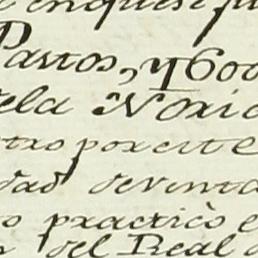 Pastos, y 600
ela Noxi
tro por este
dad deventa
o practicò e
del Real